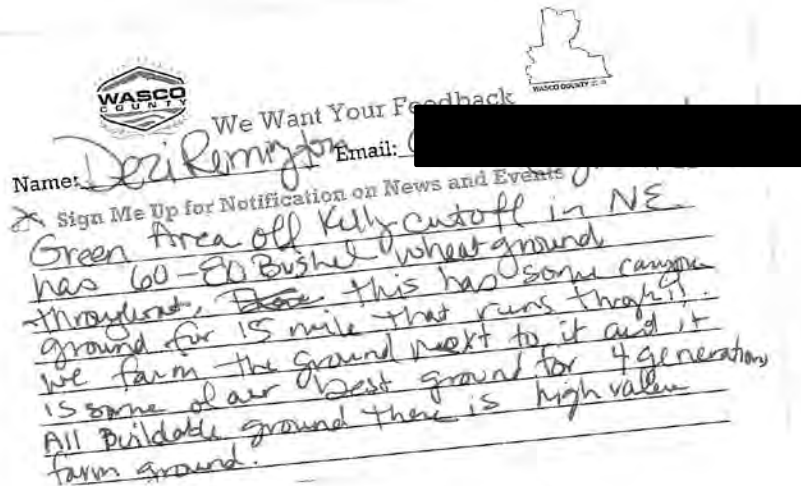 WASCO
COUNTY
WASCO COUNTY
We Want Your Feedback
Name: Dezi Remington Email:
Sign Me Up for Notification on News and Events
Green Area off Kelly Cutoff in NE
has 60-80 Bushel wheat ground
throughout, this has some canyon
ground for 15 mile that runs through it.
we farm the ground next to it and it
is some of our best ground for 4 generations
All Buildable ground there is high value
farm ground.